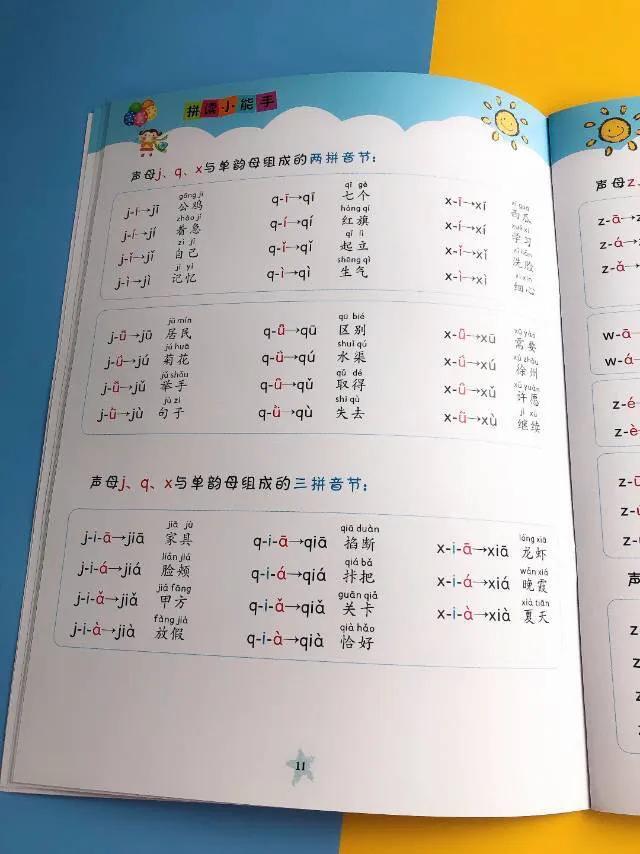 拼读小能手
声母j、q、x与单韵母组成的两拼音节：
gōng jī
j-ī→jī 公鸡
zháo jí
j-í→jí 着急
zì jǐ
j-ǐ→jǐ 自己
jì yì
j-ì→jì 记忆
qī gè
q-ī→qī 七个
hóng qí
q-í→qí 红旗
qǐ lì
q-ǐ→qǐ 起立
shēng qì
q-ì→qì 生气
xī guā
x-ī→xī 西瓜
xué xí
x-í→xí 学习
xǐ liǎn
x-ǐ→xǐ 洗脸
xì xīn
x-ì→xì 细心
jū mín
j-ǖ→jū 居民
jú huā
j-ǘ→jú 菊花
jǔ shǒu
j-ǚ→jǔ 举手
jù zi
j-ǜ→jù 句子
qū bié
q-ǖ→qū 区别
shuǐ qú
q-ǘ→qú 水渠
qǔ dé
q-ǚ→qǔ 取得
shī qù
q-ǜ→qù 失去
xū yào
x-ǖ→xū 需要
xú zhōu
x-ǘ→xú 徐州
xǔ yuàn
x-ǚ→xǔ 许愿
jì xù
x-ǜ→xù 继续
声母j、q、x与单韵母组成的三拼音节：
jiā jù
j-i-ā→jiā 家具
liǎn jiá
j-i-á→jiá 脸颊
jiǎ fāng
j-i-ǎ→jiǎ 甲方
fàng jià
j-i-à→jià 放假
qiā duàn
q-i-ā→qiā 掐断
qiá bǎ
q-i-á→qiá 拤把
guān qiǎ
q-i-ǎ→qiǎ 关卡
qià hǎo
q-i-à→qià 恰好
lóng xiā
x-i-ā→xiā 龙虾
wǎn xiá
x-i-á→xiá 晚霞
xià tiān
x-i-à→xià 夏天
11
声母z、
z-ā→z
z-á→z
z-ǎ→
w-ā
w-á
z-é
z-è
声